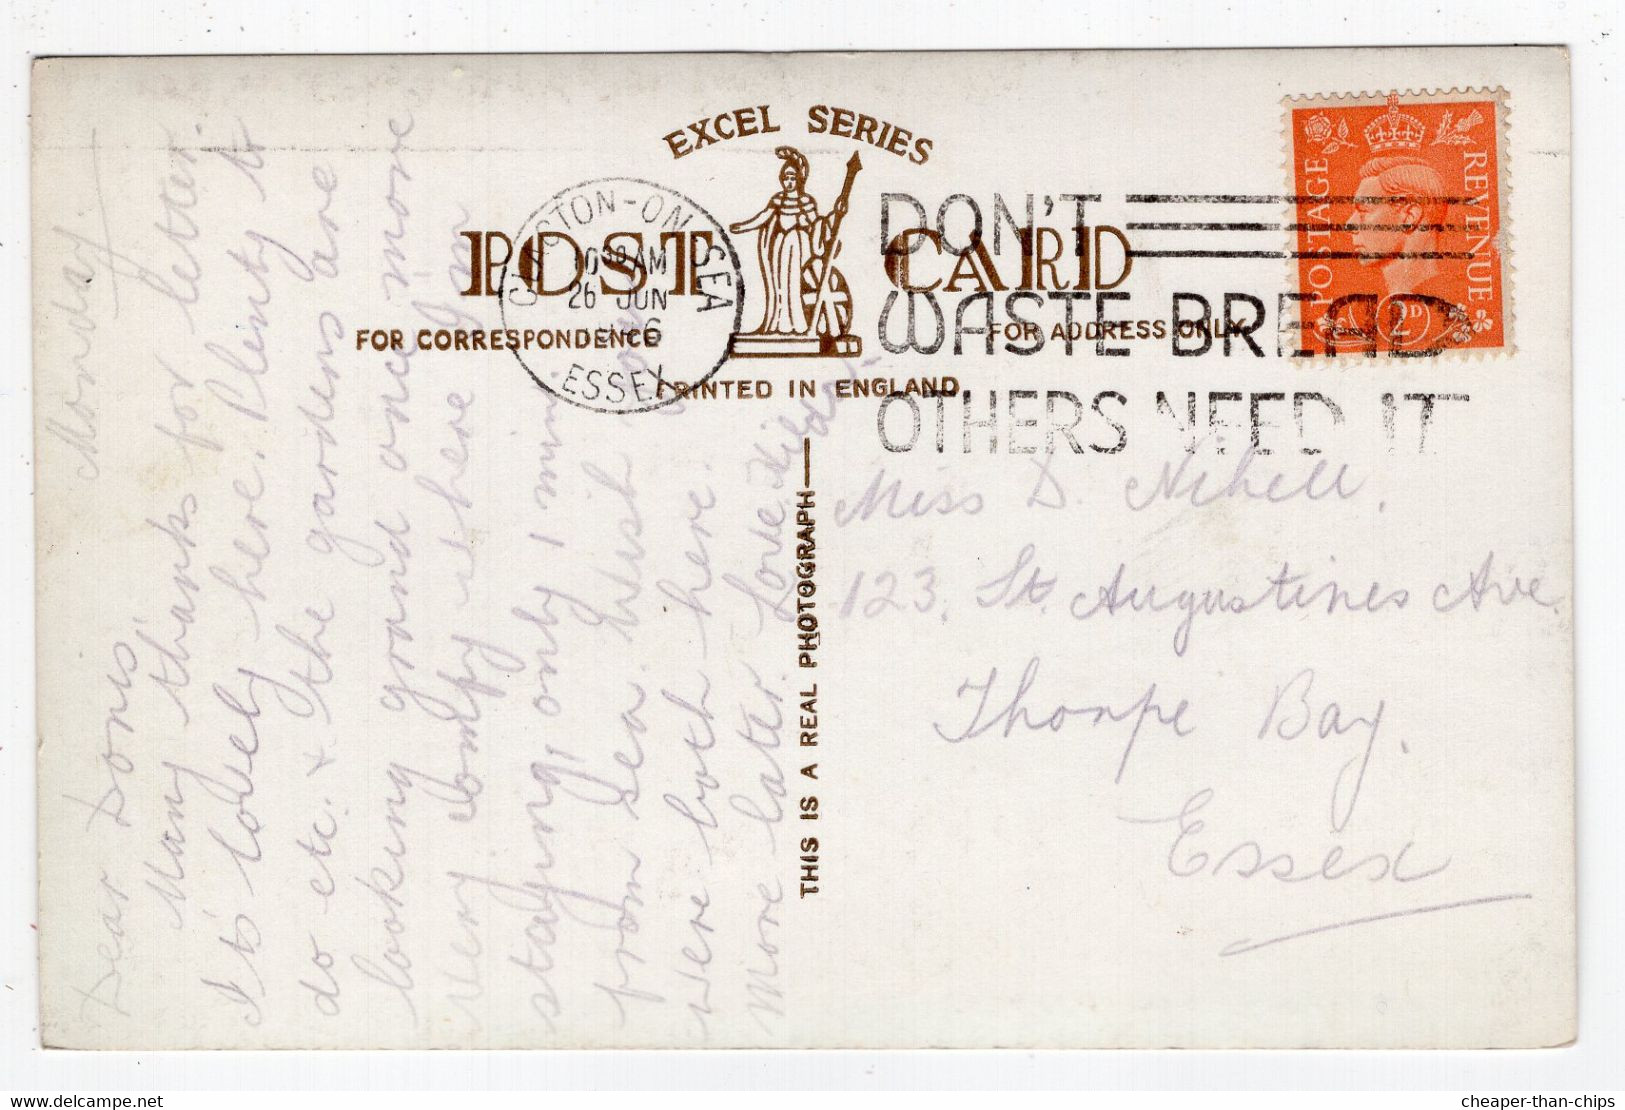 EXCEL SERIES
POST CARD
FOR CORRESPONDENCE
FOR ADDRESS ONLY
PRINTED IN ENGLAND
THIS IS A REAL PHOTOGRAPH
CLACTON-ON-SEA
10 30 AM
26 JUN
ESSEX
DON'T
WASTE BREAD
OTHERS NEED IT
POSTAGE
REVENUE
2D
Monday.
Dear Doris
Many thanks for letter.
It's lovely here. Plenty to
do etc. & the gardens are
looking grand once more
very comfy where I am
staying, only 1 min
from sea. Wish you
were both here.
More later. Love
Miss D. Nihell.
123. St. Augustines Ave.
Thorpe Bay.
Essex
cheaper-than-chips
www.delcampe.net